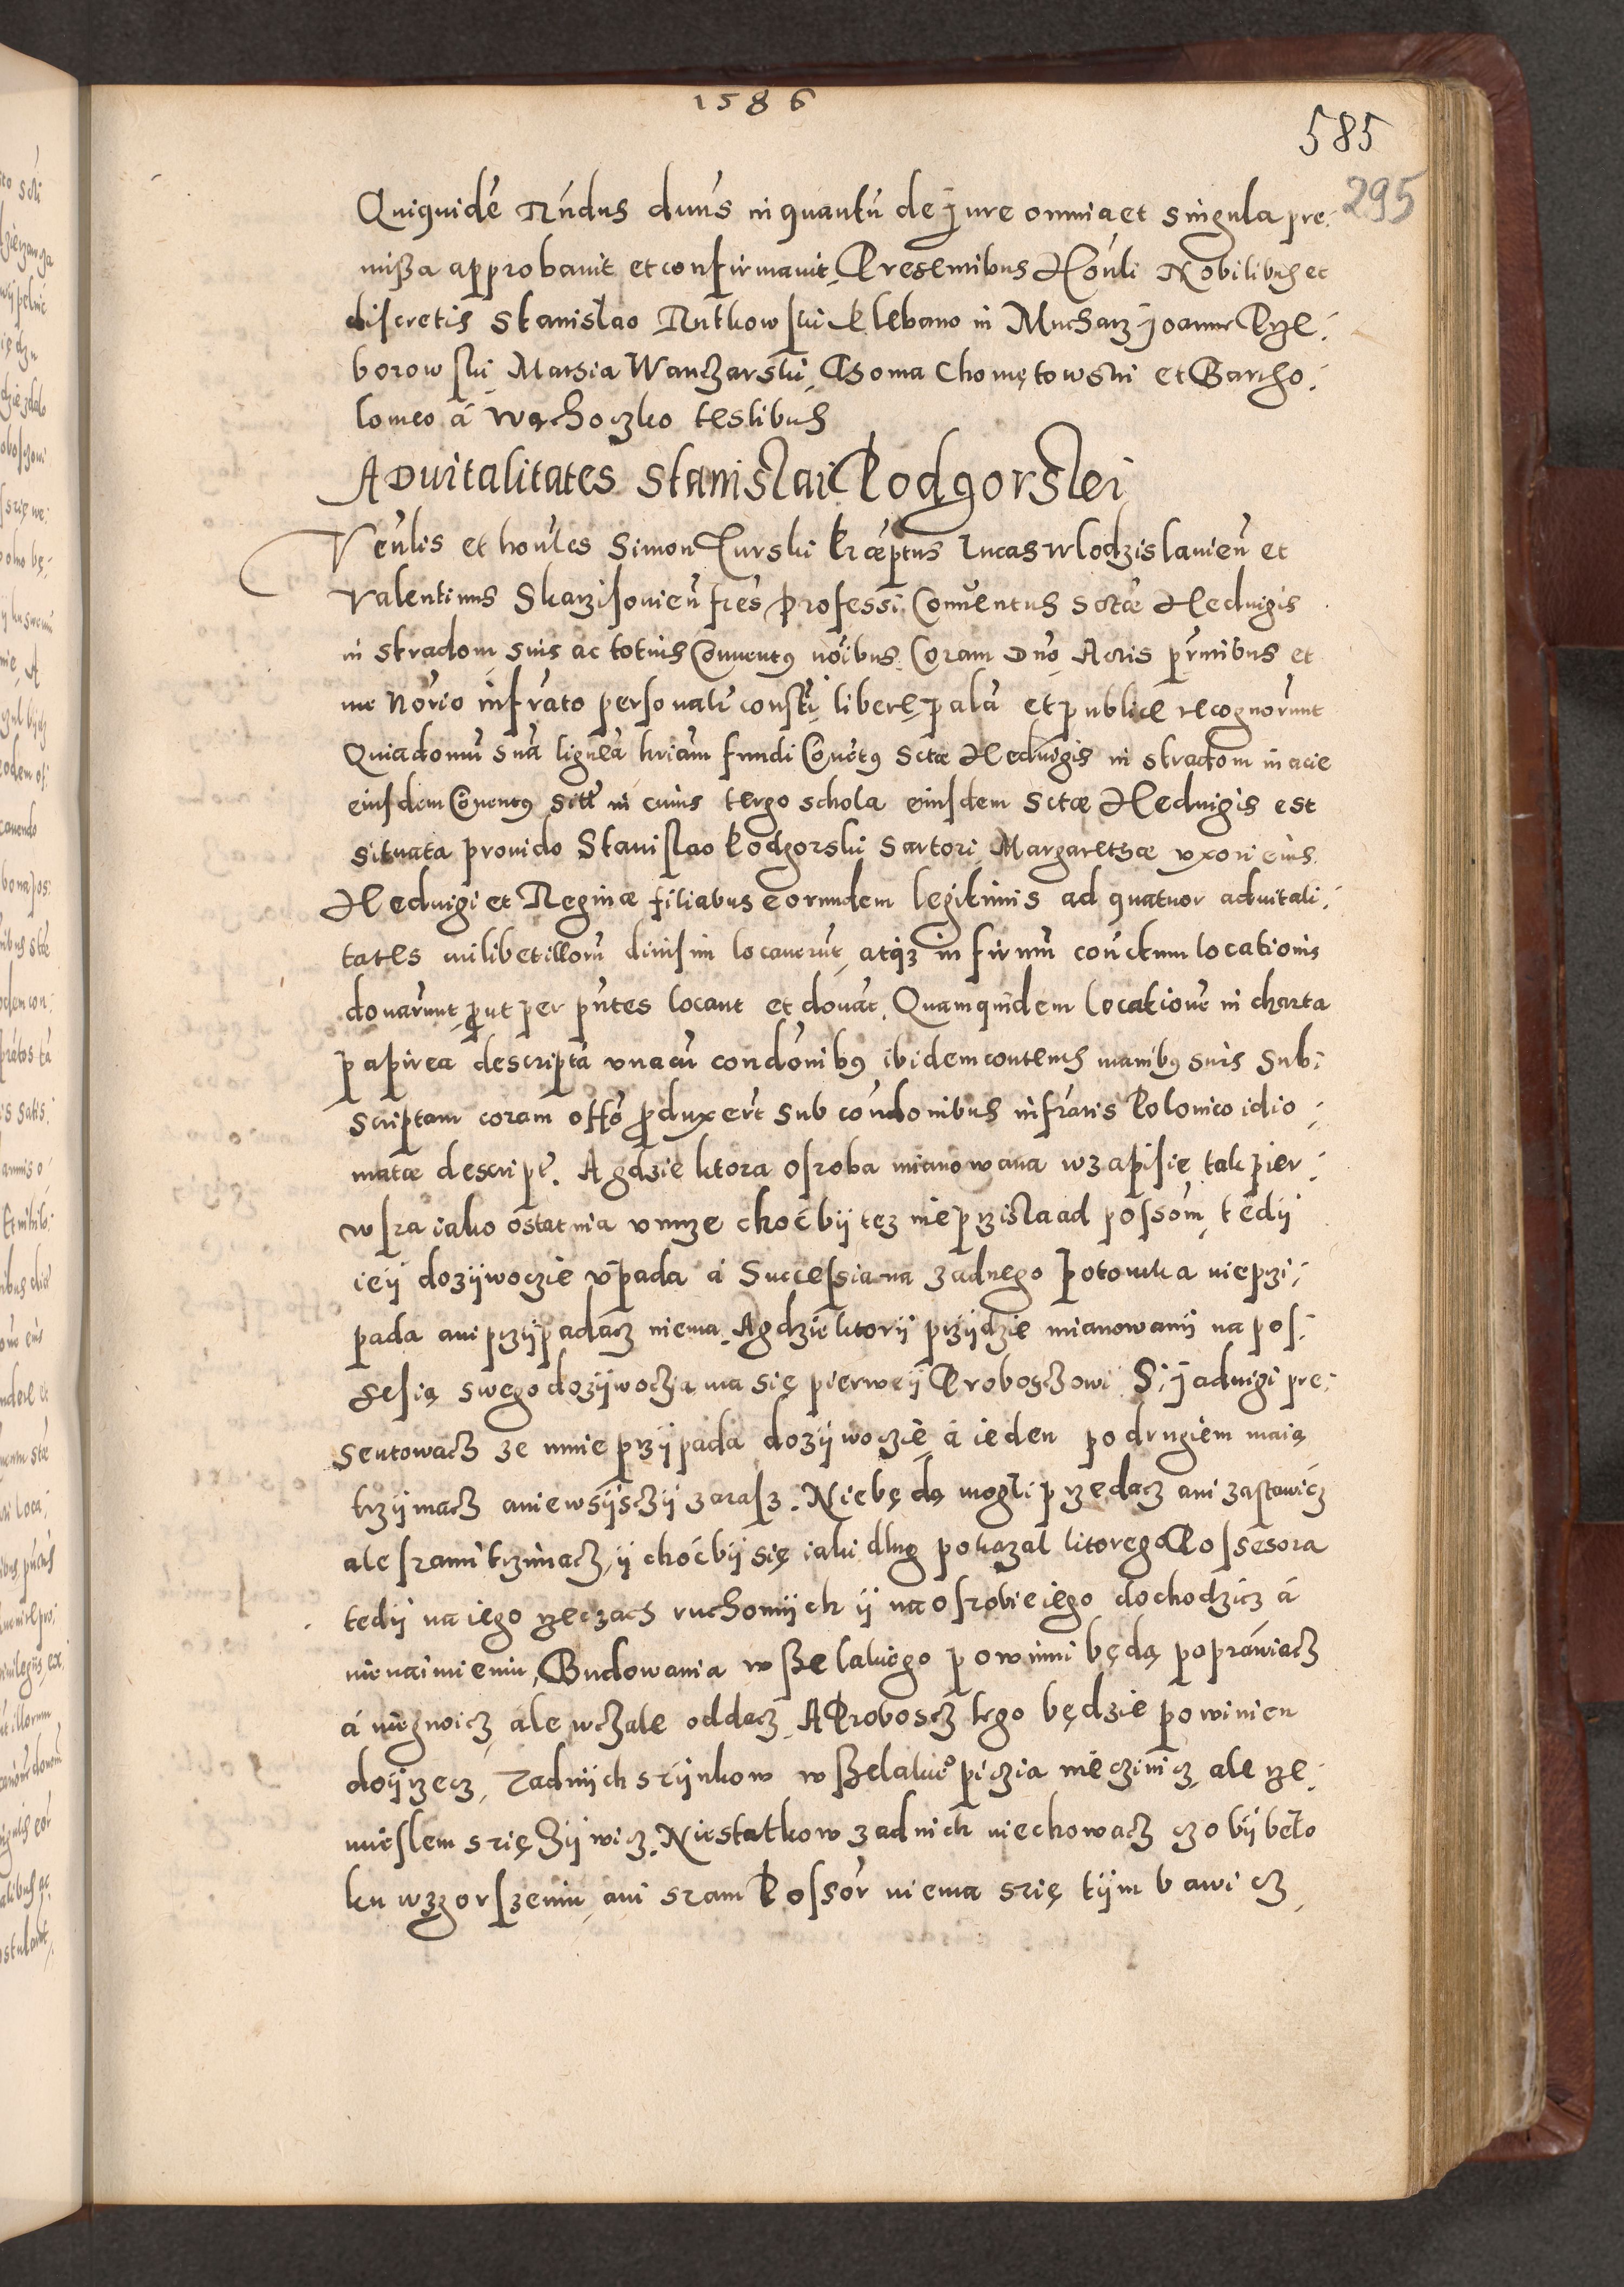 1586
585
295
Quiquidẽ Rñdus dnus in quantũ de jure omnia et singula pre:
mißa approbavit et confirmavit, Presentibus Hoñli Nobilibus et
discretis Stanislao Rutkowski Plebano in Mucharz joanne Prze:
borowski Mathia Wanczarski, Thoma Chomętowski et Bartho:
lomeo á Wąchoczko testibus
Advitalitates Stanislai Podgorskei
Veñlis et hoñles Simon Turski Præptus Lucas Wlodzislavieñ et
Valentinus Skarzisovieñ fres professi Conventus Sctæ Hedvigis
in Stradom suis ac totius Conventus noĩbus Coram Dño Actis pñtibus et
me Norio infrato personalr constti, libere, palã et publice recognorunt
Quia domũ suã ligneã hriam fundi Conẽtus Sctæ Hedvigis in Stradom in acie
eiusdem Conventus sitt in cuius tergo schola eiusdem Sctæ Hedvigis est
situata provido Stanislao Podgorski Sartori, Margarethæ uxori eius
Hedvigi et Reginæ filiabus eorundem legitimis ad quatuor advitali:
tates cuilibet illorũ divisim locaverũt, atqz in firmũ conductum locationis
donarunt, put per pñtes locant et donãt. Quamquidem locationẽ in charta
papirea descriptã unacũ condõnibus ibidem contentis manibus suis sub:
scriptam coram offo produxerũt sub condonibus infratis Polonico idio:
mate descript. A gdzie ktora osroba mianowana w zapisie, tak pier:
wsra iako ostatnia umrze choćby tez nie przisla ad possom, tedy
iey dozywoczie upada á Successia na zadnego potomka nieprzi:
pada ani przypadacz niema. A gdzie ktory przydzie mianowany na pos:
sesią swego dozywoczia ma się pierwey Proboszczowi S. jadwigi pre:
sentowacz ze mnie przypada dozywoczie, á ieden po drugiem maią
trzymacz a niewsysczy zarasz. Niebędą mogli przedacz ani zastawicz
ale srami trzimacz, y choćby się iaki dlug pokazal ktorego Possesora
tedy na iego rzeczach ruchomych y na osrobie iego dochodzicz á
nie na imieniu, Budowania wszelakiego powinni będą poprawiacz
á nie gnoicz, ale wczale oddacz. A Proboscz tego będzie powinien
doyrzecz, Zadnych srynkow wszelakiego piczia nie czinicz, ale rze:
mieslem srię zywicz. Niestatkow zadnich niechowacz czoby beło
ku wzgorszeniu, ani sram Possor niema srię tym bawicz,